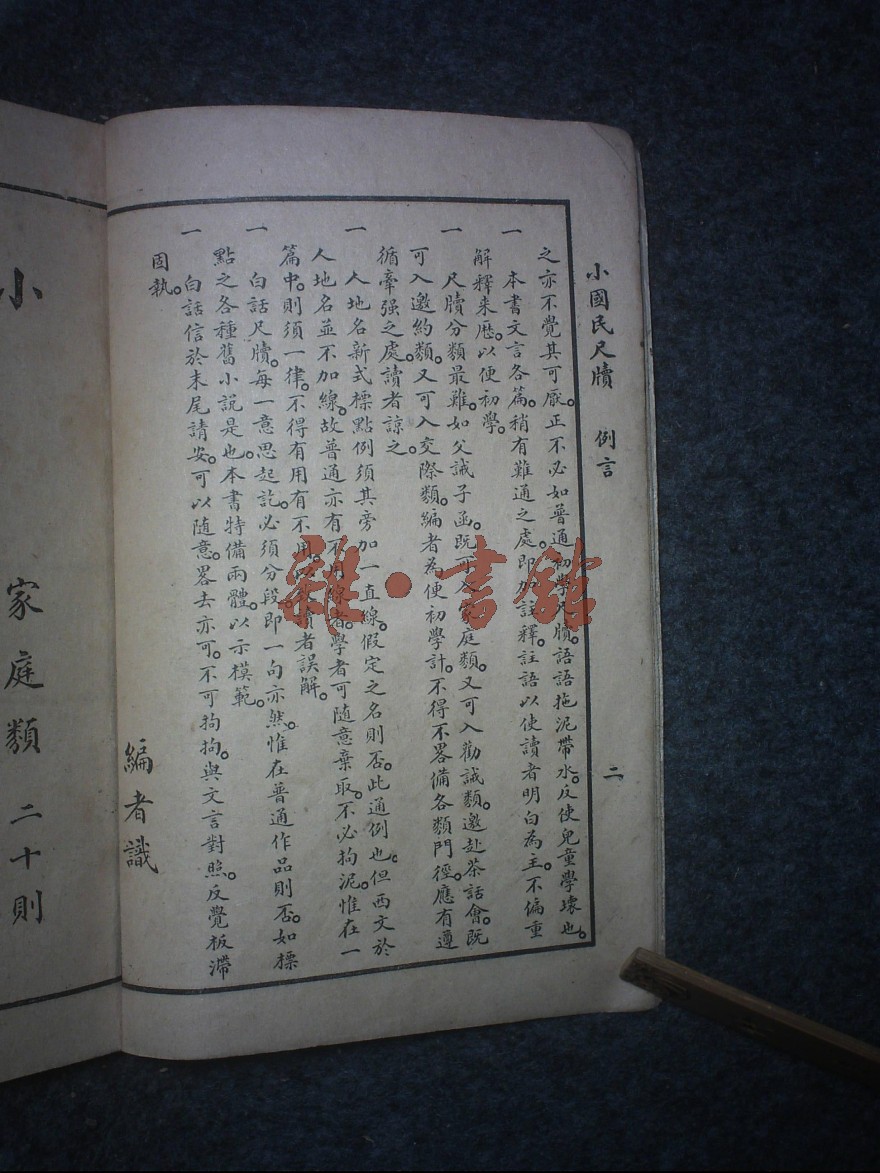 小國民尺牘　例言　二
之亦不覺其可厭。正不必如普通初學尺牘。語語拖泥帶水。反使兒童學壞也。
一　本書文言各篇。稍有難通之處。即加註釋。註語以使讀者明白為主。不偏重
解釋来歷。以便初學。
一　尺牘分類最難。如父誡子函。既可入家庭類。又可入勸誡類。邀赴茶話會。既
可入邀約類。又可入交際類。編者為便初學計。不得不畧備各類門徑。應有遵
循牽强之處。讀者諒之。
一　人地名新式標點例須其旁加一直線。假定之名則否。此通例也。但西文於
人地名並不加線。故普通亦有不用線者。學者可隨意棄取。不必拘泥。惟在一
篇中。則須一律。不得有用有不用。以致讀者誤解。
一　白話尺牘。每一意思起訖。必須分段。即一句亦然。惟在普通作品則否。如標
點之各種舊小説是也。本書特備兩體。以示模範。
一　白話信於末尾請安。可以隨意。畧去亦可。不可拘拘。與文言對照。反覺板滯
固執。
編者識
小
家庭類　二十則
雜·書館